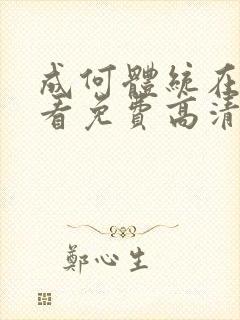 成何體統在
看免費高清
鄭心生